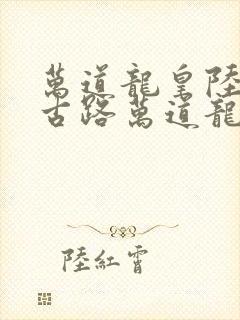 萬道龍皇陸
古路萬道龍
陸紅霄